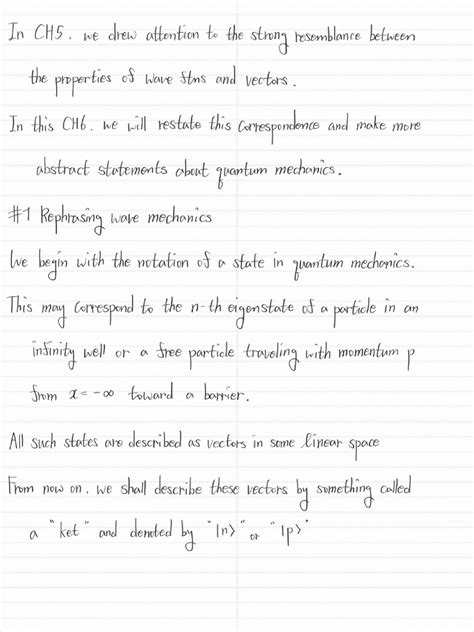 In CH5. we drew attention to the strong resemblance between
the properties of wave ftns and vectors.
In this CH6. we will restate this correspondence and make more
abstract statements about quantum mechanics.
#1 Rephrasing wave mechanics
We begin with the notation of a state in quantum mechanics.
This may correspond to the n-th eigenstate of a particle in an
infinity well or a free particle traveling with momentum p
from x = -∞ toward a barrier.
All such states are described as vectors in some linear space
From now on. we shall describe these vectors by something called
a "ket" and denoted by "|n>" or "|p>"